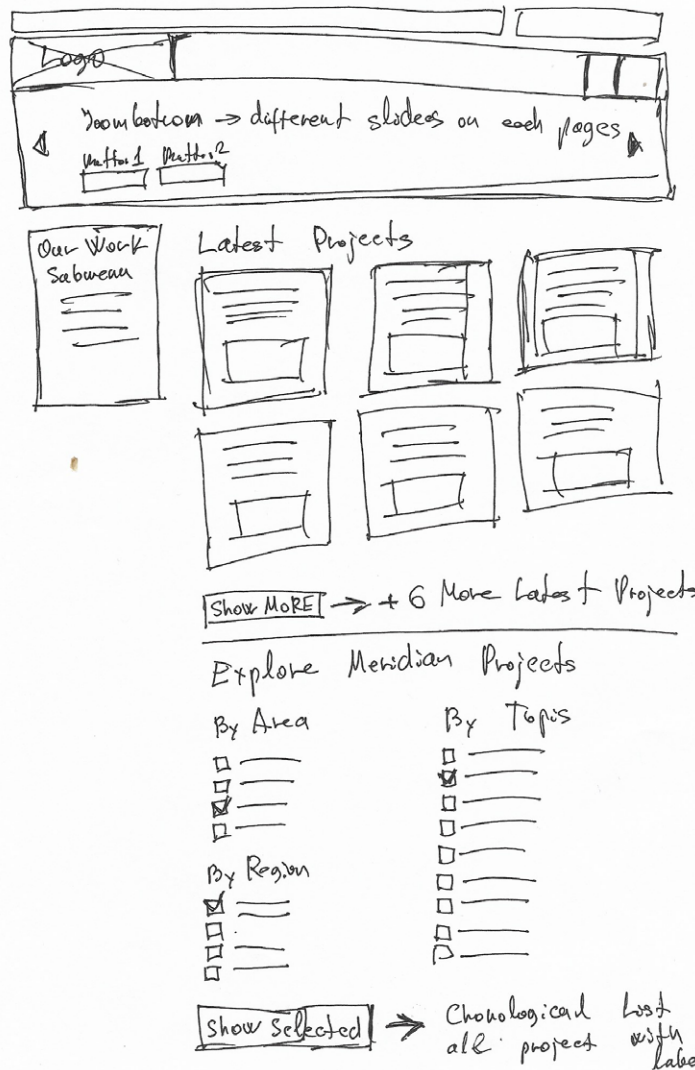 Logo
Joombotrom → different slides on each pages
Button 1 Button 2
Our Work
Submenu
Latest Projects
Show MORE → + 6 More Latest Projects
Explore Meridian Projects
By Area
By Topis
By Region
Show Selected → Chonological List
all project with
labe